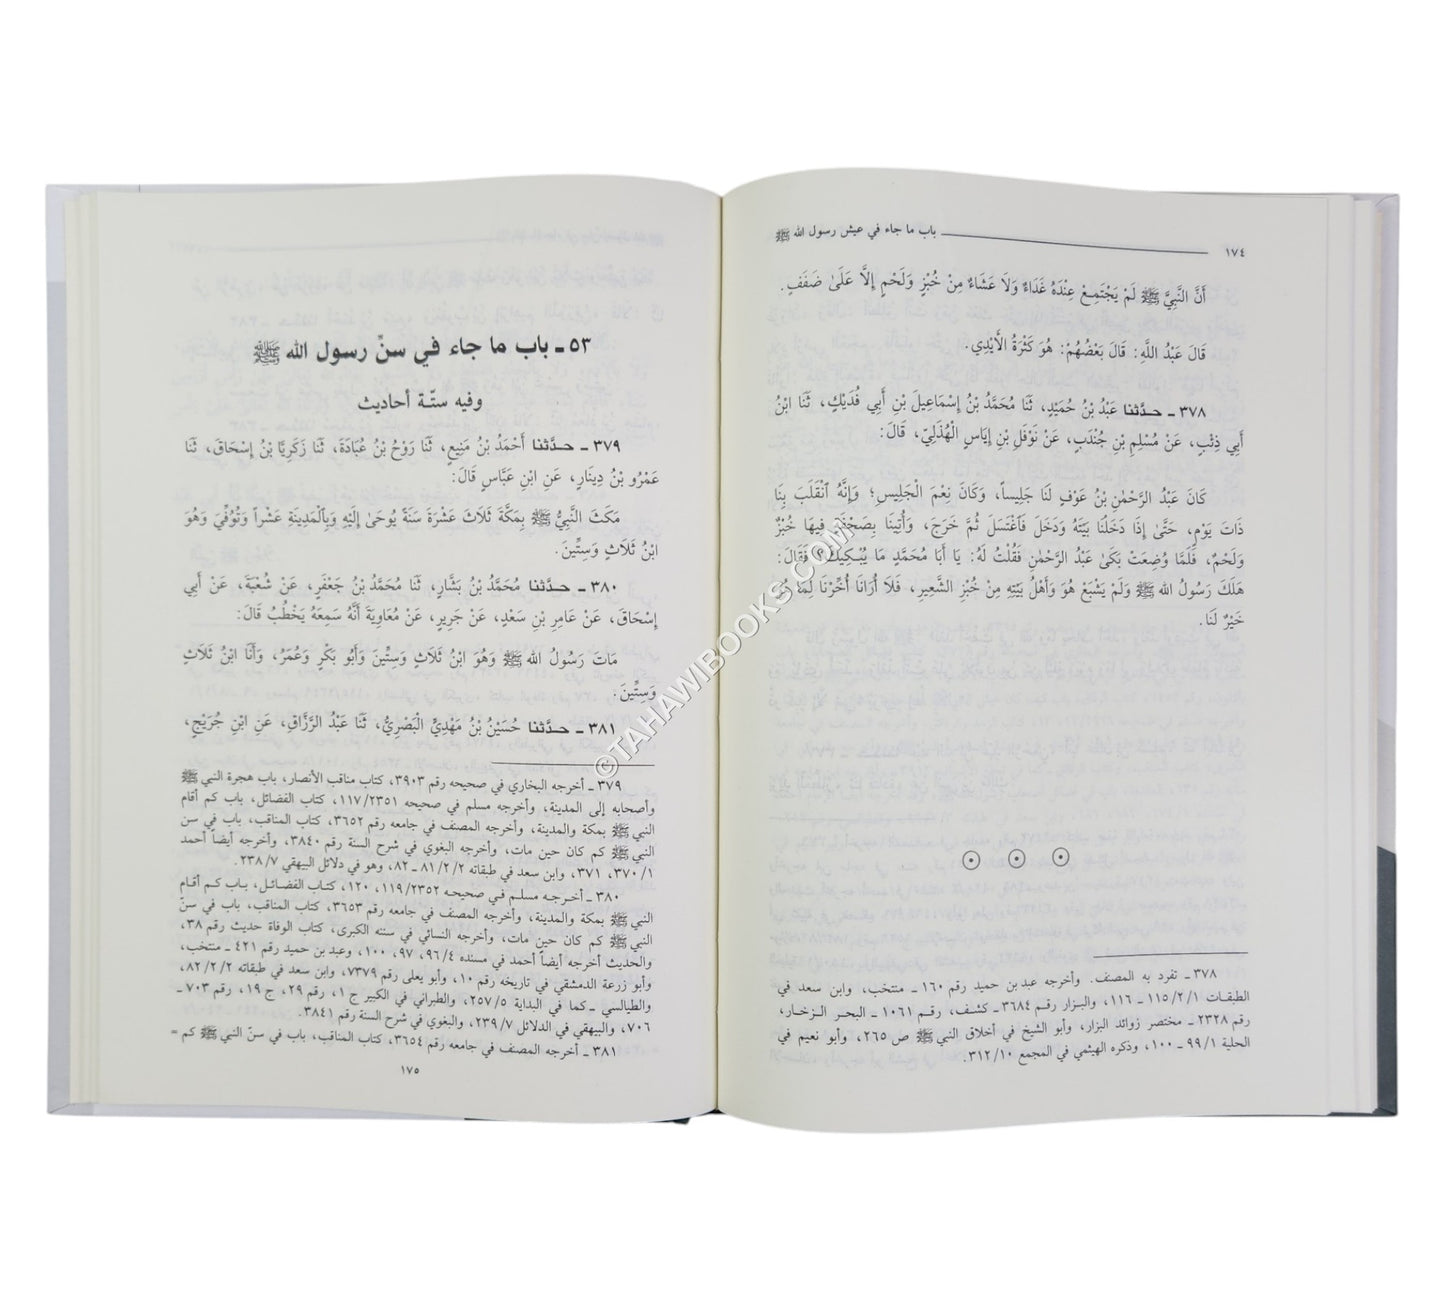 ١٧٤
باب ما جاء في عيش رسول الله ﷺ
أَنَّ النَّبِيَّ ﷺ لَمْ يَجْتَمِعْ عِنْدَهُ غَدَاءٌ وَلَا عَشَاءٌ مِنْ خُبْزٍ وَلَحْمٍ إِلَّا عَلَىٰ ضَفَفٍ.
قَالَ عَبْدُ اللَّهِ: قَالَ بَعْضُهُمْ: هُوَ كَثْرَةُ الْأَيْدِي.
٣٧٨ ـ حـدَّثنا عَبْدُ بْنُ حُمَيْدٍ، ثَنَا مُحَمَّدُ بْنُ إِسْمَاعِيلَ بْنِ أَبِي فُدَيْكٍ، ثَنَا ابْنُ
أَبِي ذِئْبٍ، عَنْ مُسْلِمِ بْنِ جُنْدَبٍ، عَنْ نَوْفَلِ بْنِ إِيَاسٍ الْهُذَلِيِّ، قَالَ:
كَانَ عَبْدُ الرَّحْمٰنِ بْنُ عَوْفٍ لَنَا جَلِيساً، وَكَانَ نِعْمَ الْجَلِيسِ؛ وَإِنَّهُ ٱنْقَلَبَ بِنَا
ذَاتَ يَوْمٍ، حَتَّىٰ إِذَا دَخَلْنَا بَيْتَهُ وَدَخَلَ فَٱغْتَسَلَ ثُمَّ خَرَجَ، وَأُتِينَا بِصَحْفَةٍ فِيهَا خُبْزٌ
وَلَحْمٌ، فَلَمَّا وُضِعَتْ بَكَىٰ عَبْدُ الرَّحْمٰنِ فَقُلْتُ لَهُ: يَا أَبَا مُحَمَّدٍ مَا يُبْكِيكَ؟ فَقَالَ:
هَلَكَ رَسُولُ الله ﷺ وَلَمْ يَشْبَعْ هُوَ وَأَهْلُ بَيْتِهِ مِنْ خُبْزِ الشَّعِيرِ، فَلَا أُرَانَا أُخِّرْنَا لِمَا هُوَ
خَيْرٌ لَنَا.
٣٧٨ ـ تفرد به المصنف. وأخرجه عبد بن حميد رقم ١٦٠ ـ منتخب، وابن سعد في
الطبقات ١١٥/٢/١ ـ ١١٦، والبزار رقم ٣٦٨٤ ـ كشف، رقم ١٠٦١ ـ البحر الزخار،
رقم ٢٣٢٨ ـ مختصر زوائد البزار، وأبو الشيخ في أخلاق النبي ﷺ ص ٢٦٥، وأبو نعيم في
الحلية ٩٩/١ ـ ١٠٠، وذكره الهيثمي في المجمع ٣١٢/١٠.
٥٣ ـ باب ما جاء في سنِّ رسول الله ﷺ
وفيه ستّة أحاديث
٣٧٩ ـ حـدَّثنا أَحْمَدُ بْنُ مَنِيعٍ، ثَنَا رَوْحُ بْنُ عُبَادَةَ، ثَنَا زَكَرِيَّا بْنُ إِسْحَاقَ، ثَنَا
عَمْرُو بْنُ دِينَارٍ، عَنِ ابْنِ عَبَّاسٍ قَالَ:
مَكَثَ النَّبِيُّ ﷺ بِمَكَّةَ ثَلَاثَ عَشْرَةَ سَنَةً يُوحَىٰ إِلَيْهِ وَبِالْمَدِينَةِ عَشْراً وَتُوُفِّيَ وَهُوَ
ابْنُ ثَلَاثٍ وَسِتِّينَ.
٣٨٠ ـ حـدَّثنا مُحَمَّدُ بْنُ بَشَّارٍ، ثَنَا مُحَمَّدُ بْنُ جَعْفَرٍ، عَنْ شُعْبَةَ، عَنْ أَبِي
إِسْحَاقَ، عَنْ عَامِرِ بْنِ سَعْدٍ، عَنْ جَرِيرٍ، عَنْ مُعَاوِيَةَ أَنَّهُ سَمِعَهُ يَخْطُبُ قَالَ:
مَاتَ رَسُولُ الله ﷺ وَهُوَ ابْنُ ثَلَاثٍ وَسِتِّينَ وَأَبُو بَكْرٍ وَعُمَرُ، وَأَنَا ابْنُ ثَلَاثٍ
وَسِتِّينَ.
٣٨١ ـ حـدَّثنا حُسَيْنُ بْنُ مَهْدِيٍّ الْبَصْرِيُّ، ثَنَا عَبْدُ الرَّزَّاقِ، عَنِ ابْنِ جُرَيْجٍ،
٣٧٩ ـ أخرجه البخاري في صحيحه رقم ٣٩٠٣، كتاب مناقب الأنصار، باب هجرة النبي ﷺ
وأصحابه إلى المدينة، وأخرجه مسلم في صحيحه ١١٧/٢٣٥١، كتاب الفضائل، باب كم أقام
النبي ﷺ بمكة والمدينة، وأخرجه المصنف في جامعه رقم ٣٦٥٢، كتاب المناقب، باب في سن
النبي ﷺ كم كان حين مات، وأخرجه البغوي في شرح السنة رقم ٣٨٤٠، وأخرجه أيضاً أحمد
٣٧٠/١، ٣٧١، وابن سعد في طبقاته ٨١/٢/٢ ـ ٨٢، وهو في دلائل البيهقي ٢٣٨/٧.
٣٨٠ ـ أخرجه مسلم في صحيحه ١١٩/٢٣٥٢، ١٢٠، كتاب الفضائل، باب كم أقام
النبي ﷺ بمكة والمدينة، وأخرجه المصنف في جامعه رقم ٣٦٥٣، كتاب المناقب، باب في سنّ
النبي ﷺ كم كان حين مات، وأخرجه النسائي في سننه الكبرى، كتاب الوفاة حديث رقم ٣٨،
والحديث أخرجه أيضاً أحمد في مسنده ٩٦/٤، ٩٧، ١٠٠، وعبد بن حميد رقم ٤٢١ ـ منتخب،
وأبو زرعة الدمشقي في تاريخه رقم ١٠، وأبو يعلى رقم ٧٣٧٩، وابن سعد في طبقاته ٨٢/٢/٢،
والطيالسي ـ كما في البداية ٢٥٧/٥، والطبراني في الكبير ج ١، رقم ٢٩، ج ١٩، رقم ٧٠٣ ـ
٧٠٦، والبيهقي في الدلائل ٢٣٩/٧، والبغوي في شرح السنة رقم ٣٨٤١.
٣٨١ ـ أخرجه المصنف في جامعه رقم ٣٦٥٤، كتاب المناقب، باب في سنّ النبي ﷺ كم =
١٧٥
©TAHAWIBOOKS.COM